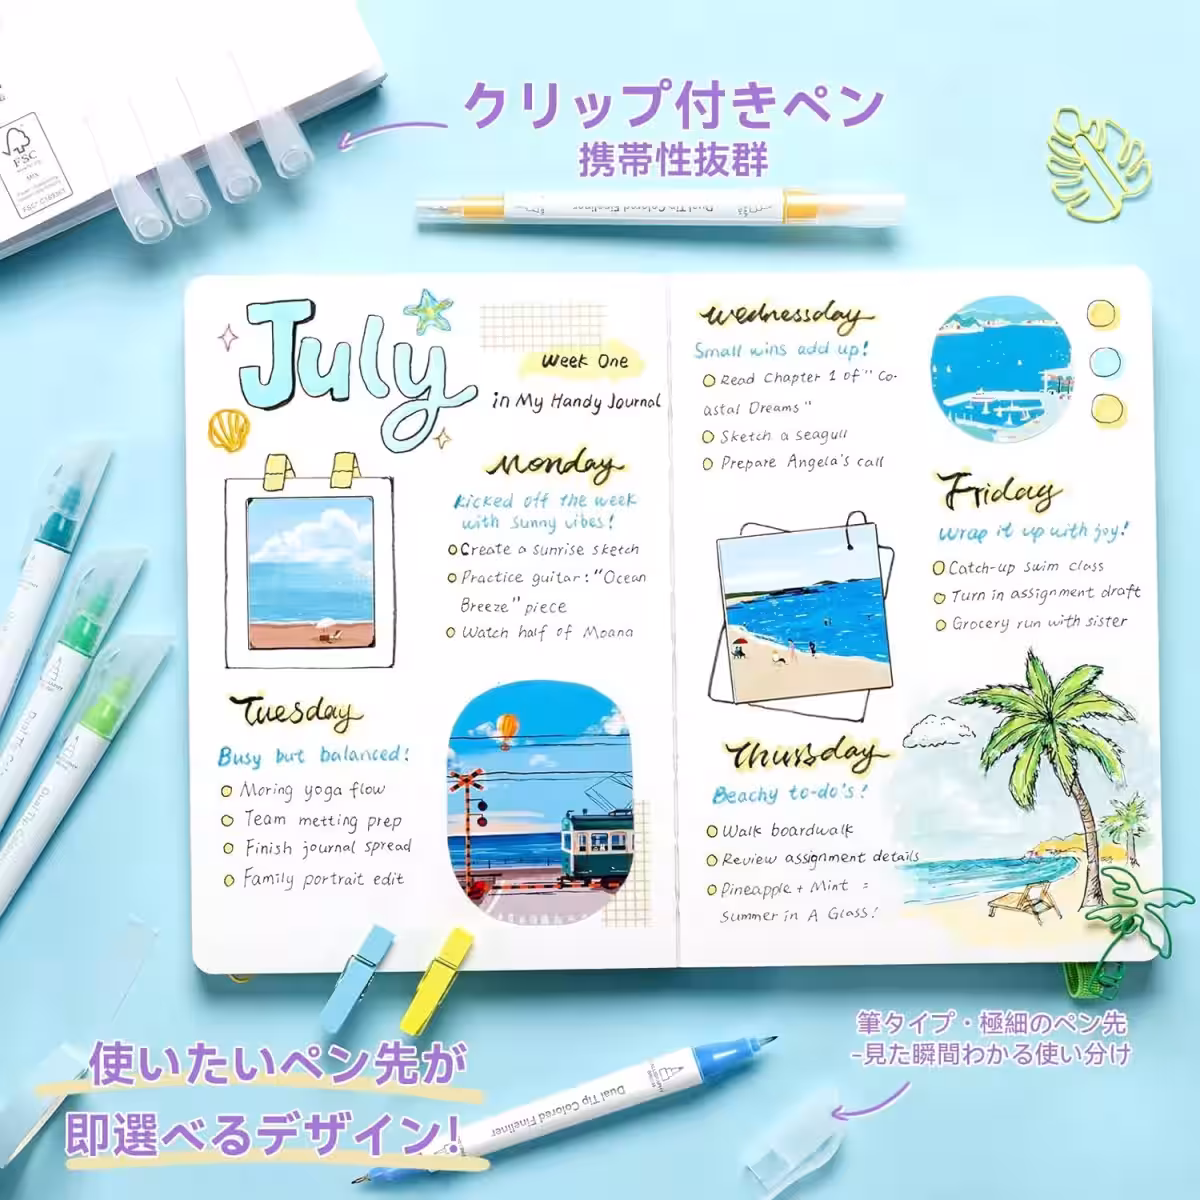 クリップ付きペン
携帯性抜群
FSC
Mix
Dual Tip Colored Fineliner
July
Week One
in My Handy Journal
Monday
kicked off the week
with sunny vibes!
Create a sunrise sketch
Practice guitar: "Ocean
Breeze" piece
Watch half of Moana
Tuesday
Busy but balanced!
Moring yoga flow
Team metting prep
Finish journal spread
Family portrait edit
Wednessday
Small wins add up!
Read Chapter 1 of "Co-
astal Dreams"
Sketch a seagull
Prepare Angela's call
Thursday
Beachy to-do's!
Walk boardwalk
Review assignment details
Pineapple + Mint =
Summer in A Glass!
Friday
Wrap it up with joy!
Catch-up swim class
Turn in assignment draft
Grocery run with sister
使いたいペン先が
即選べるデザイン!
筆タイプ・極細のペン先
-見た瞬間わかる使い分け
Dual Tip Colored Fineliner